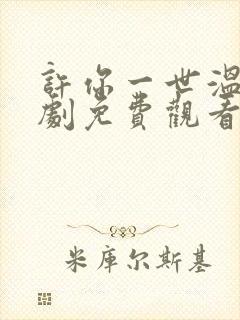 許你一世溫
劇免費觀看
米库尔斯基